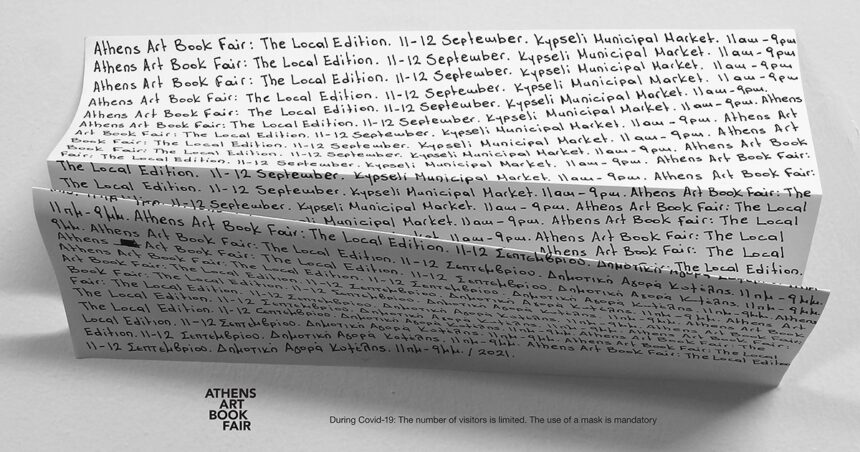 Athens Art Book Fair: The Local Edition. 11-12 September. Kypseli Municipal Market. 11am-9pm
Athens Art Book Fair: The Local Edition. 11-12 September. Kypseli Municipal Market. 11am-9pm
Athens Art Book Fair: The Local Edition. 11-12 September. Kypseli Municipal Market. 11am-9pm
Athens Art Book Fair: The Local Edition. 11-12 September. Kypseli Municipal Market. 11am-9pm.
Athens Art Book Fair: The Local Edition. 11-12 September. Kypseli Municipal Market. 11am-9pm. Athens
Athens Art Book Fair: The Local Edition. 11-12 September. Kypseli Municipal Market. 11am-9pm. Athens Art
Art Book Fair: The Local Edition. 11-12 September. Kypseli Municipal Market. 11am-9pm. Athens Art
Book Fair: The Local Edition. 11-12 September. Kypseli Municipal Market. 11am-9pm. Athens Art Book
Fair: The Local Edition. 11-12 September. Kypseli Municipal Market. 11am-9pm. Athens Art Book Fair:
The Local Edition. 11-12 September. Kypseli Municipal Market. 11am-9pm. Athens Art Book Fair: The
The Local Edition. 11-12 September. Kypseli Municipal Market. 11am-9pm. Athens Art Book Fair: The
Municipal Market. 11am-9pm. Athens Art Book Fair: The Local
11am-9pm. Athens Art Book Fair: The Local
Athens Art Book Fair: The Local
The Local Edition.
11πμ-9μμ. Athens Art Book Fair: The Local Edition. 11-12 Σεπτεμβρίου. Δημοτική
9μμ. Athens Art Book Fair: The Local Edition. 11-12 Σεπτεμβρίου. Δημοτική Αγορά Κυψέλης. 11πμ-9μμ.
Athens Art Book Fair: The Local Edition. 11-12 Σεπτεμβρίου. Δημοτική Αγορά Κυψέλης. 11πμ-9μμ.
Athens Art Book Fair: The Local Edition. 11-12 Σεπτεμβρίου. Δημοτική Αγορά Κυψέλης. 11πμ-9μμ. Athens
Art Book Fair: The Local Edition. 11-12 Σεπτεμβρίου. Δημοτική Αγορά Κυψέλης. 11πμ-9μμ. Athens Art
Book Fair: The Local Edition. 11-12 Σεπτεμβρίου. Δημοτική Αγορά Κυψέλης. 11πμ-9μμ. Athens Art Book
Fair: The Local Edition. 11-12 Σεπτεμβρίου. Δημοτική Αγορά Κυψέλης. 11πμ-9μμ. Athens Art Book Fair:
The Local Edition. 11-12 Σεπτεμβρίου. Δημοτική Αγορά Κυψέλης. 11πμ-9μμ. Athens Art Book Fair:
The Local Edition. 11-12 Σεπτεμβρίου. Δημοτική Αγορά Κυψέλης. 11πμ-9μμ. Athens Art Book Fair: The
Local Edition. 11-12 Σεπτεμβρίου. Δημοτική Αγορά Κυψέλης. 11πμ-9μμ. Athens Art Book Fair: The Local
Edition. 11-12 Σεπτεμβρίου. Δημοτική Αγορά Κυψέλης. 11πμ-9μμ. Athens Art Book Fair: The Local Edition.
11-12 Σεπτεμβρίου. Δημοτική Αγορά Κυψέλης. 11πμ-9μμ. / 2021.
ATHENS
ART
BOOK
FAIR
During Covid-19: The number of visitors is limited. The use of a mask is mandatory